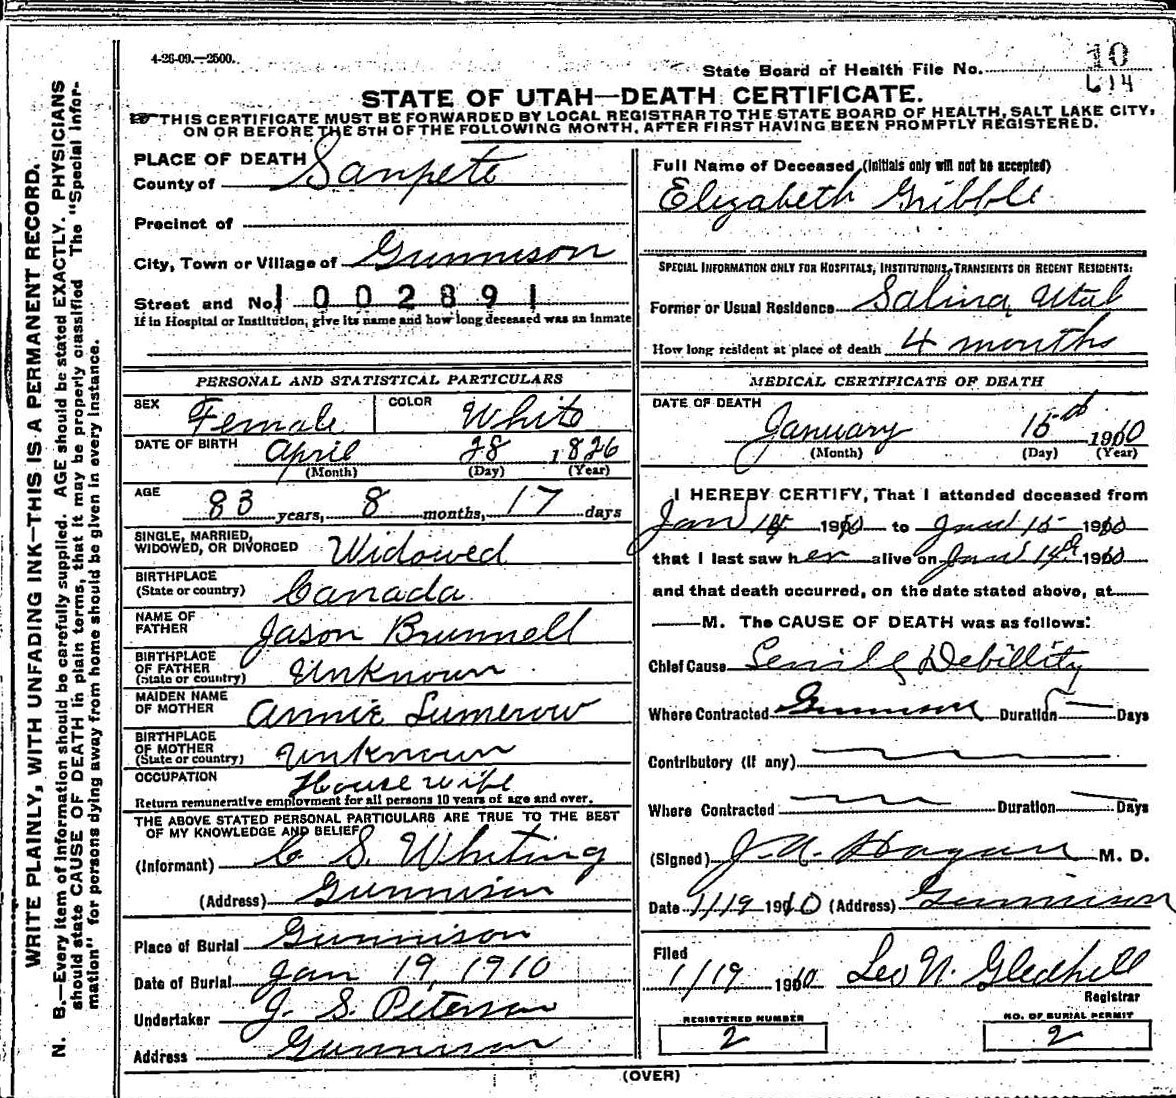 4-26-09.—2500.
State Board of Health File No. 10
614
STATE OF UTAH—DEATH CERTIFICATE.
THIS CERTIFICATE MUST BE FORWARDED BY LOCAL REGISTRAR TO THE STATE BOARD OF HEALTH, SALT LAKE CITY,
ON OR BEFORE THE 5TH OF THE FOLLOWING MONTH, AFTER FIRST HAVING BEEN PROMPTLY REGISTERED.
WRITE PLAINLY, WITH UNFADING INK—THIS IS A PERMANENT RECORD.
N. B.—Every item of information should be carefully supplied. AGE should be stated EXACTLY. PHYSICIANS
should state CAUSE OF DEATH in plain terms, that it may be properly classified The "Special Infor-
mation" for persons dying away from home should be given in every instance.
PLACE OF DEATH
County of Sanpete
Precinct of
City, Town or Village of Gunnison
Street and No. 1002891
If in Hospital or Institution, give its name and how long deceased was an inmate
PERSONAL AND STATISTICAL PARTICULARS
SEX Female COLOR White
DATE OF BIRTH April 28 1826
(Month) (Day) (Year)
AGE 83 years, 8 months, 17 days
SINGLE, MARRIED,
WIDOWED, OR DIVORCED Widowed
BIRTHPLACE
(State or country) Canada
NAME OF
FATHER Jason Brunnell
BIRTHPLACE
OF FATHER
(State or country) Unknown
MAIDEN NAME
OF MOTHER Annie Lumerow
BIRTHPLACE
OF MOTHER
(State or country) Unknown
OCCUPATION House wife
Return remunerative employment for all persons 10 years of age and over.
THE ABOVE STATED PERSONAL PARTICULARS ARE TRUE TO THE BEST
OF MY KNOWLEDGE AND BELIEF
(Informant) C. S. Whiting
(Address) Gunnison
Place of Burial Gunnison
Date of Burial Jan 19, 1910
Undertaker J. S. Peterson
Address Gunnison
Full Name of Deceased (Initials only will not be accepted)
Elizabeth Gribble
SPECIAL INFORMATION ONLY FOR HOSPITALS, INSTITUTIONS, TRANSIENTS OR RECENT RESIDENTS:
Former or Usual Residence Salina Utah
How long resident at place of death 4 months
MEDICAL CERTIFICATE OF DEATH
DATE OF DEATH
January 15 1910
(Month) (Day) (Year)
I HEREBY CERTIFY, That I attended deceased from
Jan 1910 to Jan 15 1910
that I last saw her alive on Jan 14th 1910
and that death occurred, on the date stated above, at
M. The CAUSE OF DEATH was as follows:
Chief Cause Senile Debillity
Where Contracted Gunnison Duration 5 Days
Contributory (If any)
Where Contracted Duration Days
(Signed) J. A. Hagan M. D.
Date 1/19 1910 (Address) Gunnison
Filed
1/19 1910 Leo N. Gledhill
Registrar
REGISTERED NUMBER
2
NO. OF BURIAL PERMIT
2
(OVER)